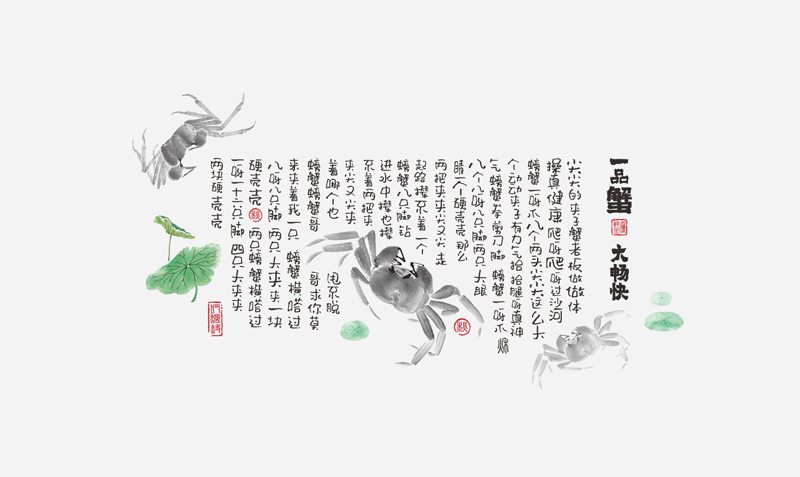 一品蟹 大畅快
尖尖的夹子蟹老板做做体
操真健康 爬呀爬呀过沙河
螃蟹一呀爪八个两头尖尖这么大
个动动夹子有力气抬抬腿呀真神
气螃蟹拳剪刀脚 螃蟹一呀爪
八个八呀八只脚两只大眼
睛一个硬壳壳那么
两把夹夹尖又尖 走
起路撵不着一个
螃蟹八只脚 钻
进水中撵也撵
不着两把夹
夹尖又尖夹
着哪个也 甩不脱
螃蟹蟹哥 哥求你莫
来夹着我一只 螃蟹横嗒过
八呀八只脚 两只大夹夹一块
硬壳壳 两只螃蟹横嗒过
一呀一十六只脚 四只大夹夹
两块硬壳壳